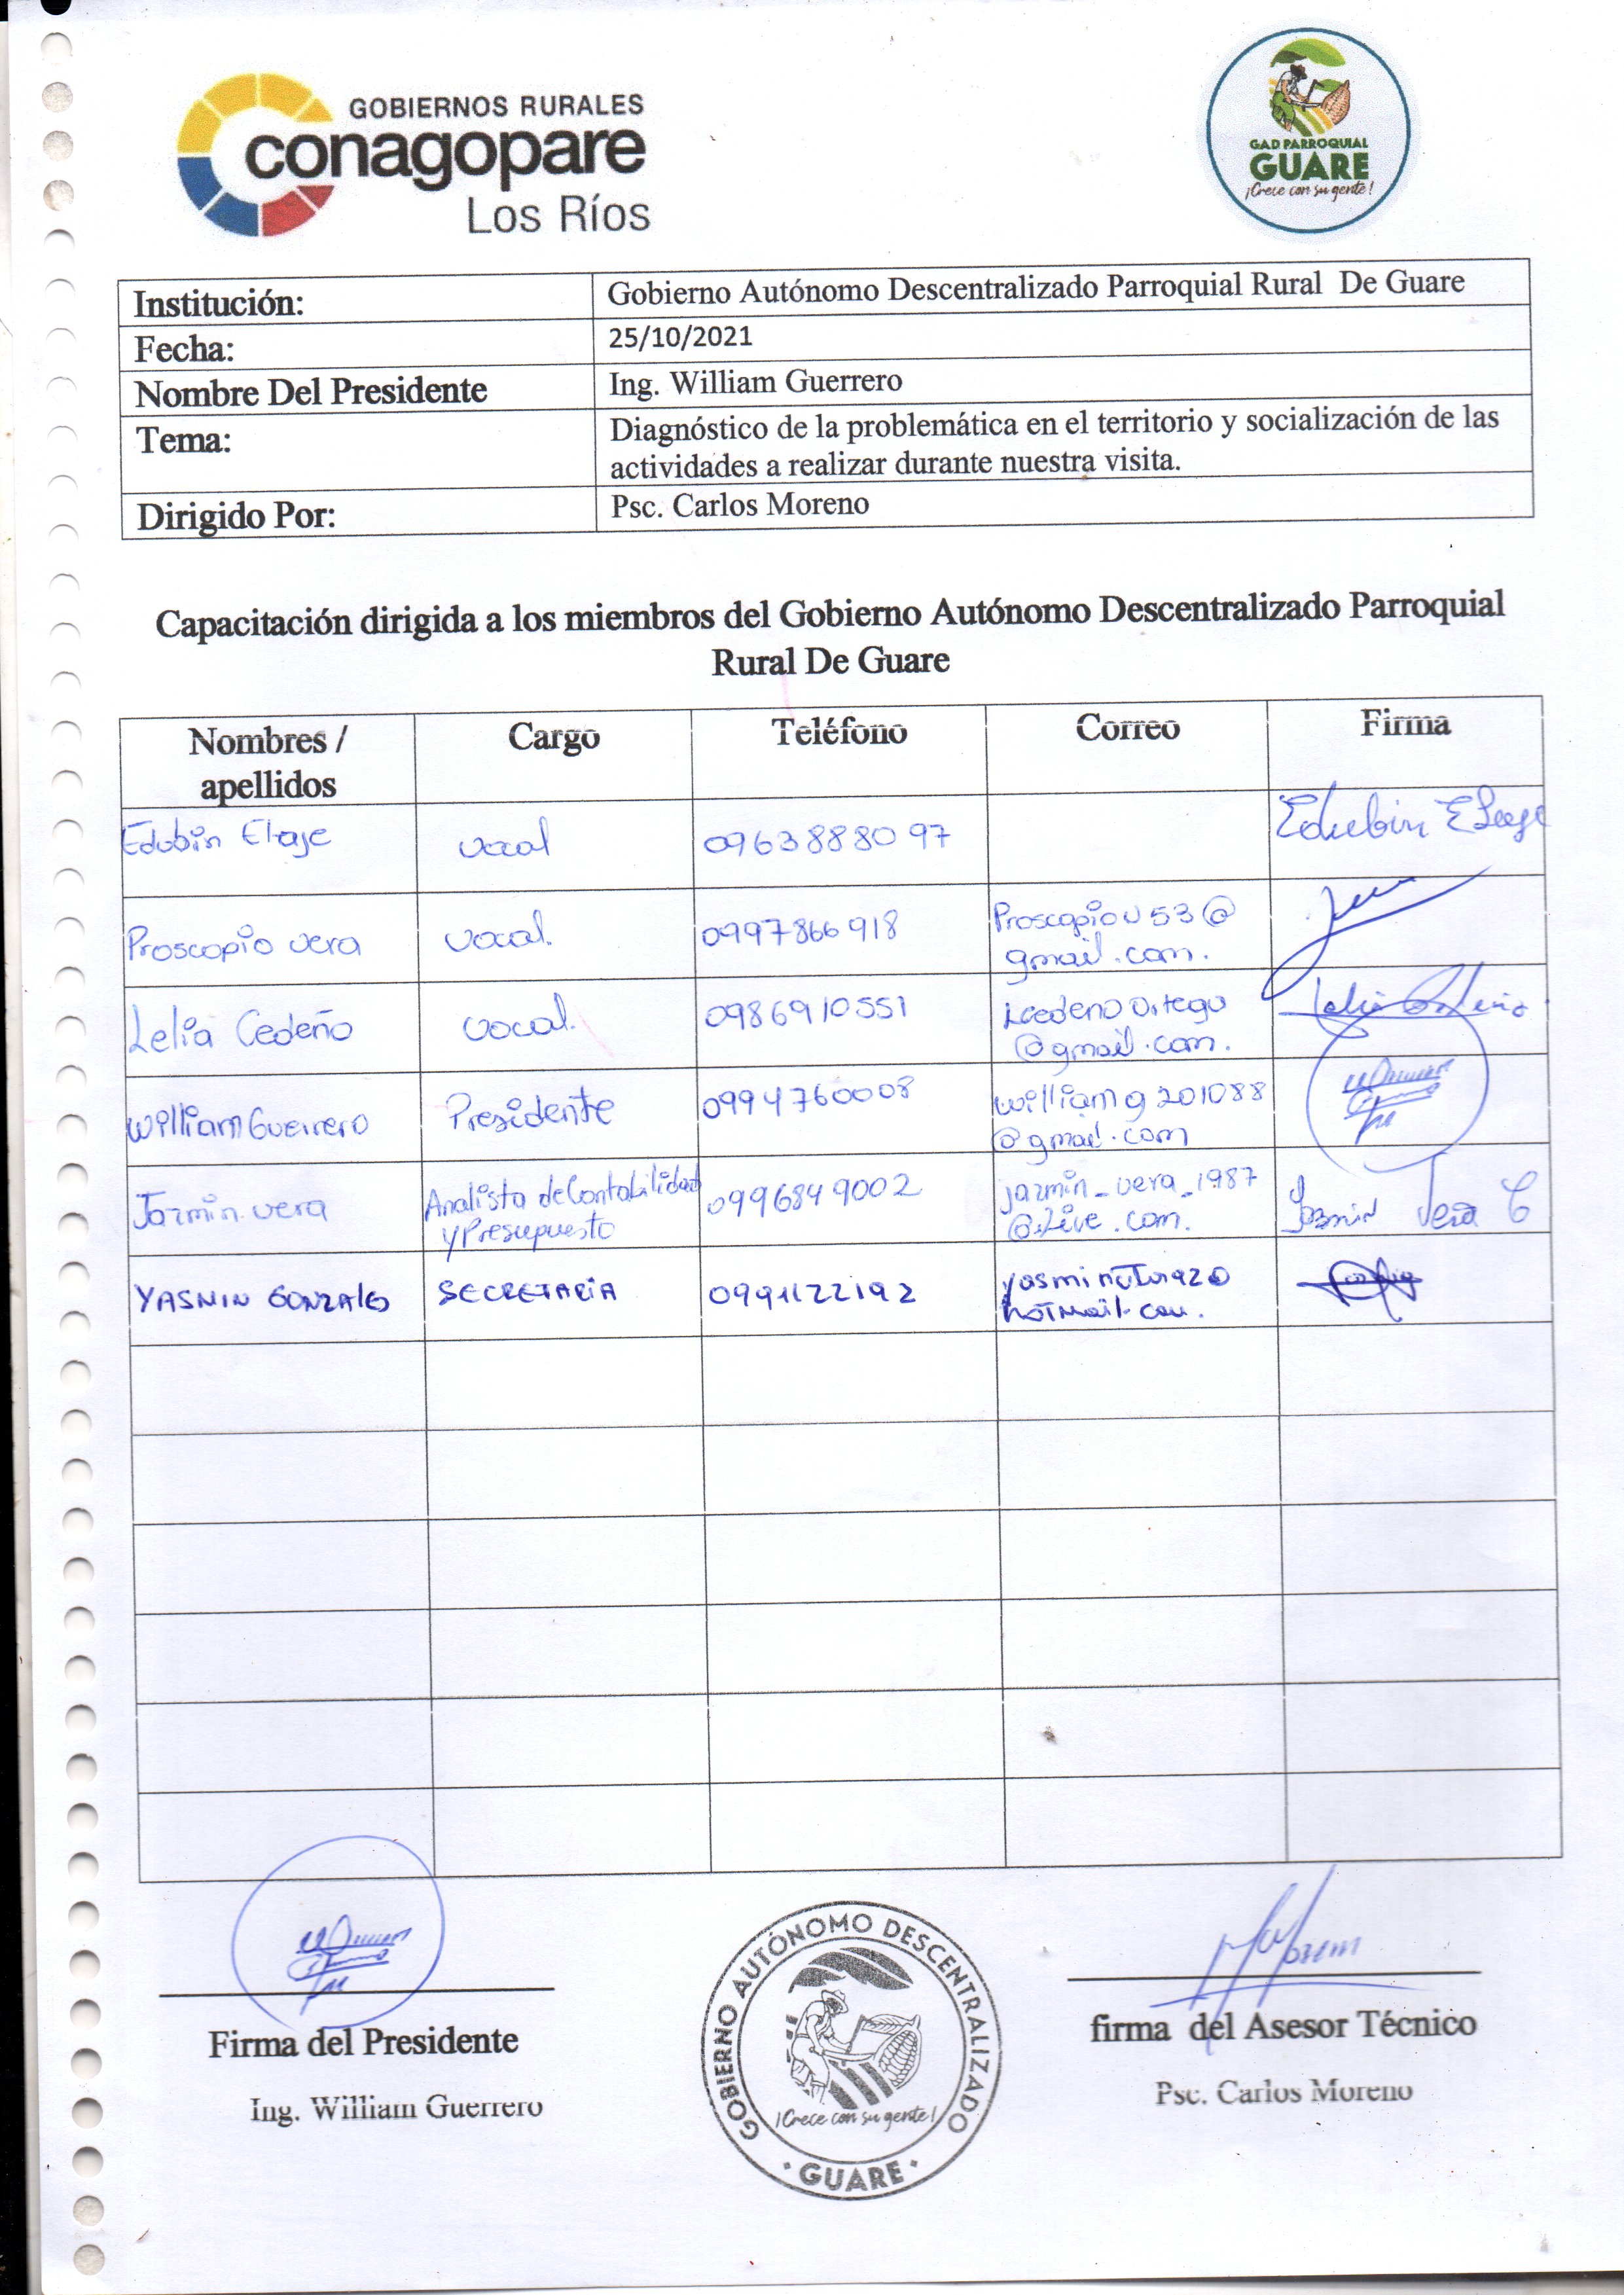 GOBIERNOS RURALES
conagopare
Los Ríos
GAD PARROQUIAL
GUARE
¡Crece con su gente!
Institución: Gobierno Autónomo Descentralizado Parroquial Rural De Guare
Fecha: 25/10/2021
Nombre Del Presidente Ing. William Guerrero
Tema: Diagnóstico de la problemática en el territorio y socialización de las
actividades a realizar durante nuestra visita.
Dirigido Por: Psc. Carlos Moreno
Capacitación dirigida a los miembros del Gobierno Autónomo Descentralizado Parroquial
Rural De Guare
Nombres / Cargo Teléfono Correo Firma
apellidos
Edubin vocal 0963888097 Edubin
Proscopio vera vocal. 0997866918 Proscopiov53@
gmail.com.
Lelia Cedeño vocal. 0986910551 Lcedeno Ortega
@gmail.com.
William Guerrero Presidente 0994760008 williamg201088
@gmail.com
Jazmin vera Analista de Contabilidad 0996849002 jazmin_vera_1987 Jazmin Vera C
y Presupuesto @live.com.
YASMIN GONZALES SECRETARIA
hotmail.com.
Firma del Presidente
Ing. William Guerrero
GOBIERNO AUTÓNOMO DESCENTRALIZADO
¡Crece con su gente!
· GUARE ·
firma del Asesor Técnico
Psc. Carlos Moreno